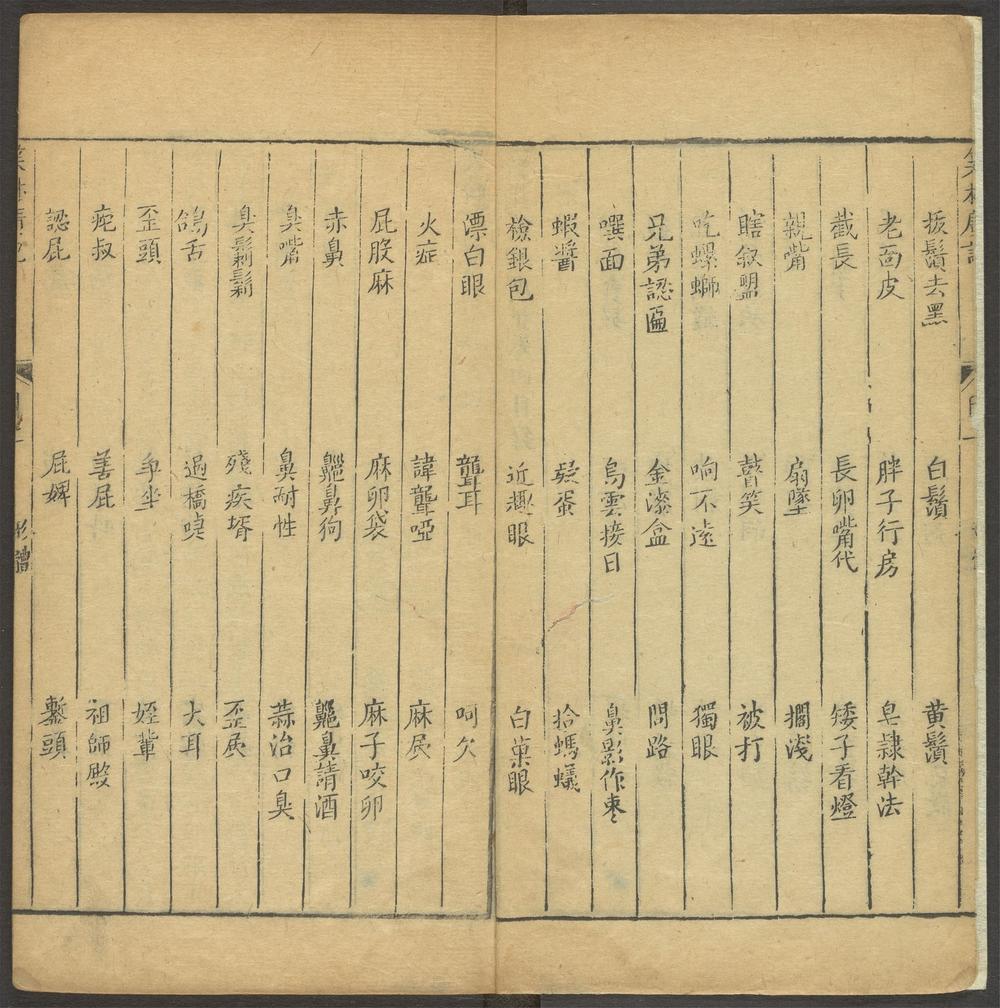 拔鬚去黑 白鬚 黄鬚
老面皮 胖子行房 皂隷幹法
截長 長卵嘴代 矮子看燈
親嘴 扇墜 擱淺
瞎叙盟 瞽笑 被打
吃螺螄 响不遠 獨眼
兄弟認匾 金漆盒 問路
噀面 烏雲接日 鼻影作枣
蝦醬 疑蛋 拾螞蟻
檢銀包 近趣眼 白菓眼
漂白眼 聾耳 呵欠
火症 諱聾啞 麻屄
屁股麻 麻卵袋 麻子咬卵
赤鼻 齆鼻狗 齆鼻請酒
臭嘴 鼻耐性 蒜治口臭
臭鬎鬁 殘疾壻 歪屄
鴿舌 過橋嚏 大耳
歪頭 爭坐 姪輩
疤叔 善屁 祖師殿
認屁 屁婢 鏨頭